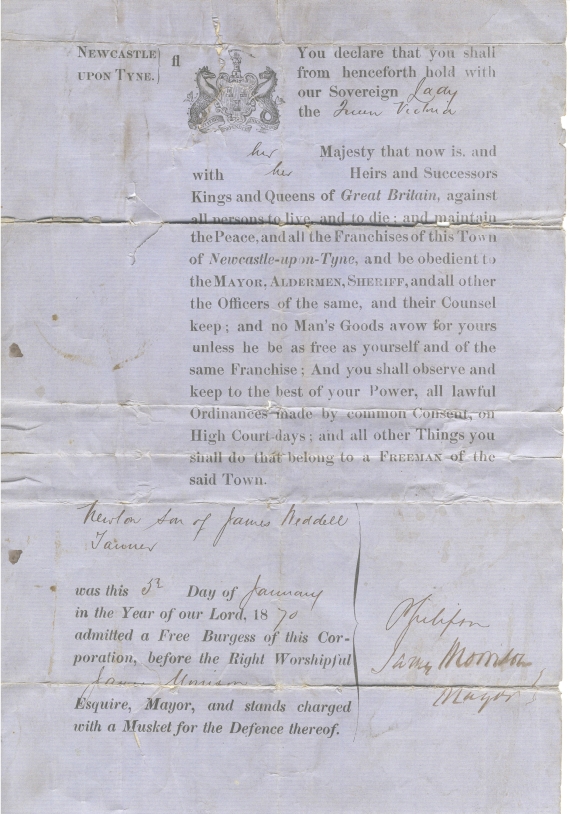 NEWCASTLE
UPON TYNE.
fl
You declare that you shall
from henceforth hold with
our Sovereign Lady
the Queen Victoria
her Majesty that now is, and
with her Heirs and Successors
Kings and Queens of Great Britain, against
all persons to live, and to die; and maintain
the Peace, and all the Franchises of this Town
of Newcastle-upon-Tyne, and be obedient to
the MAYOR, ALDERMEN, SHERIFF, and all other
the Officers of the same, and their Counsel
keep; and no Man's Goods avow for yours
unless he be as free as yourself and of the
same Franchise; And you shall observe and
keep to the best of your Power, all lawful
Ordinances made by common Consent, on
High Court-days; and all other Things you
shall do that belong to a FREEMAN of the
said Town.
Newton son of James Weddell
Tanner
was this Day of January
in the Year of our Lord, 1870
admitted a Free Burgess of this Cor-
poration, before the Right Worshipful
James Morrison
Esquire, Mayor, and stands charged
with a Musket for the Defence thereof.
Philipson
Morrison
Mayor